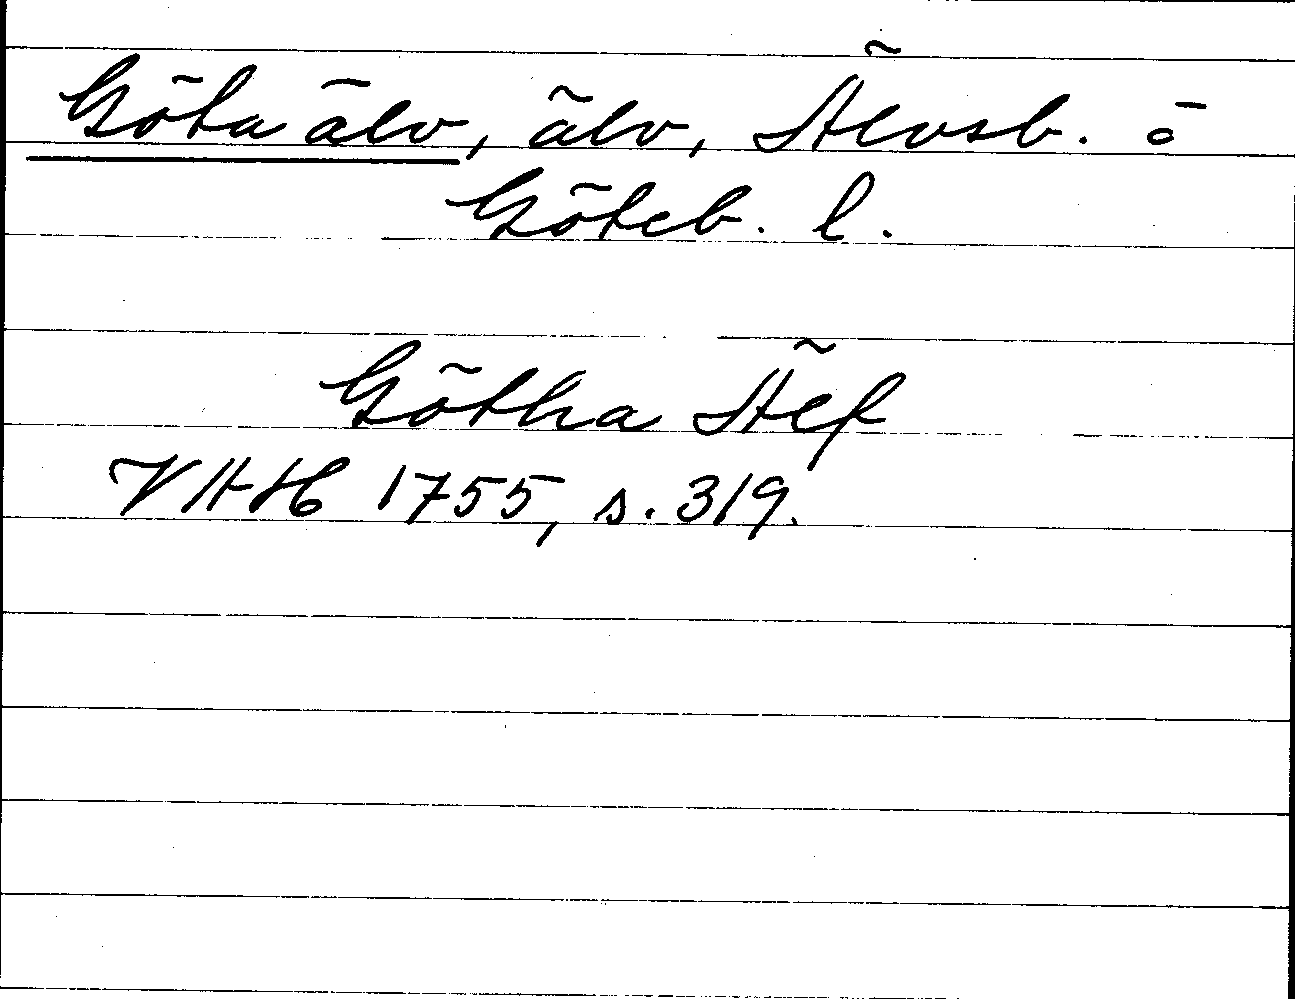 Göta älv, älv, Älvsb. o
Göteb. l.
Götha Älf
VAH 1755, s. 319.